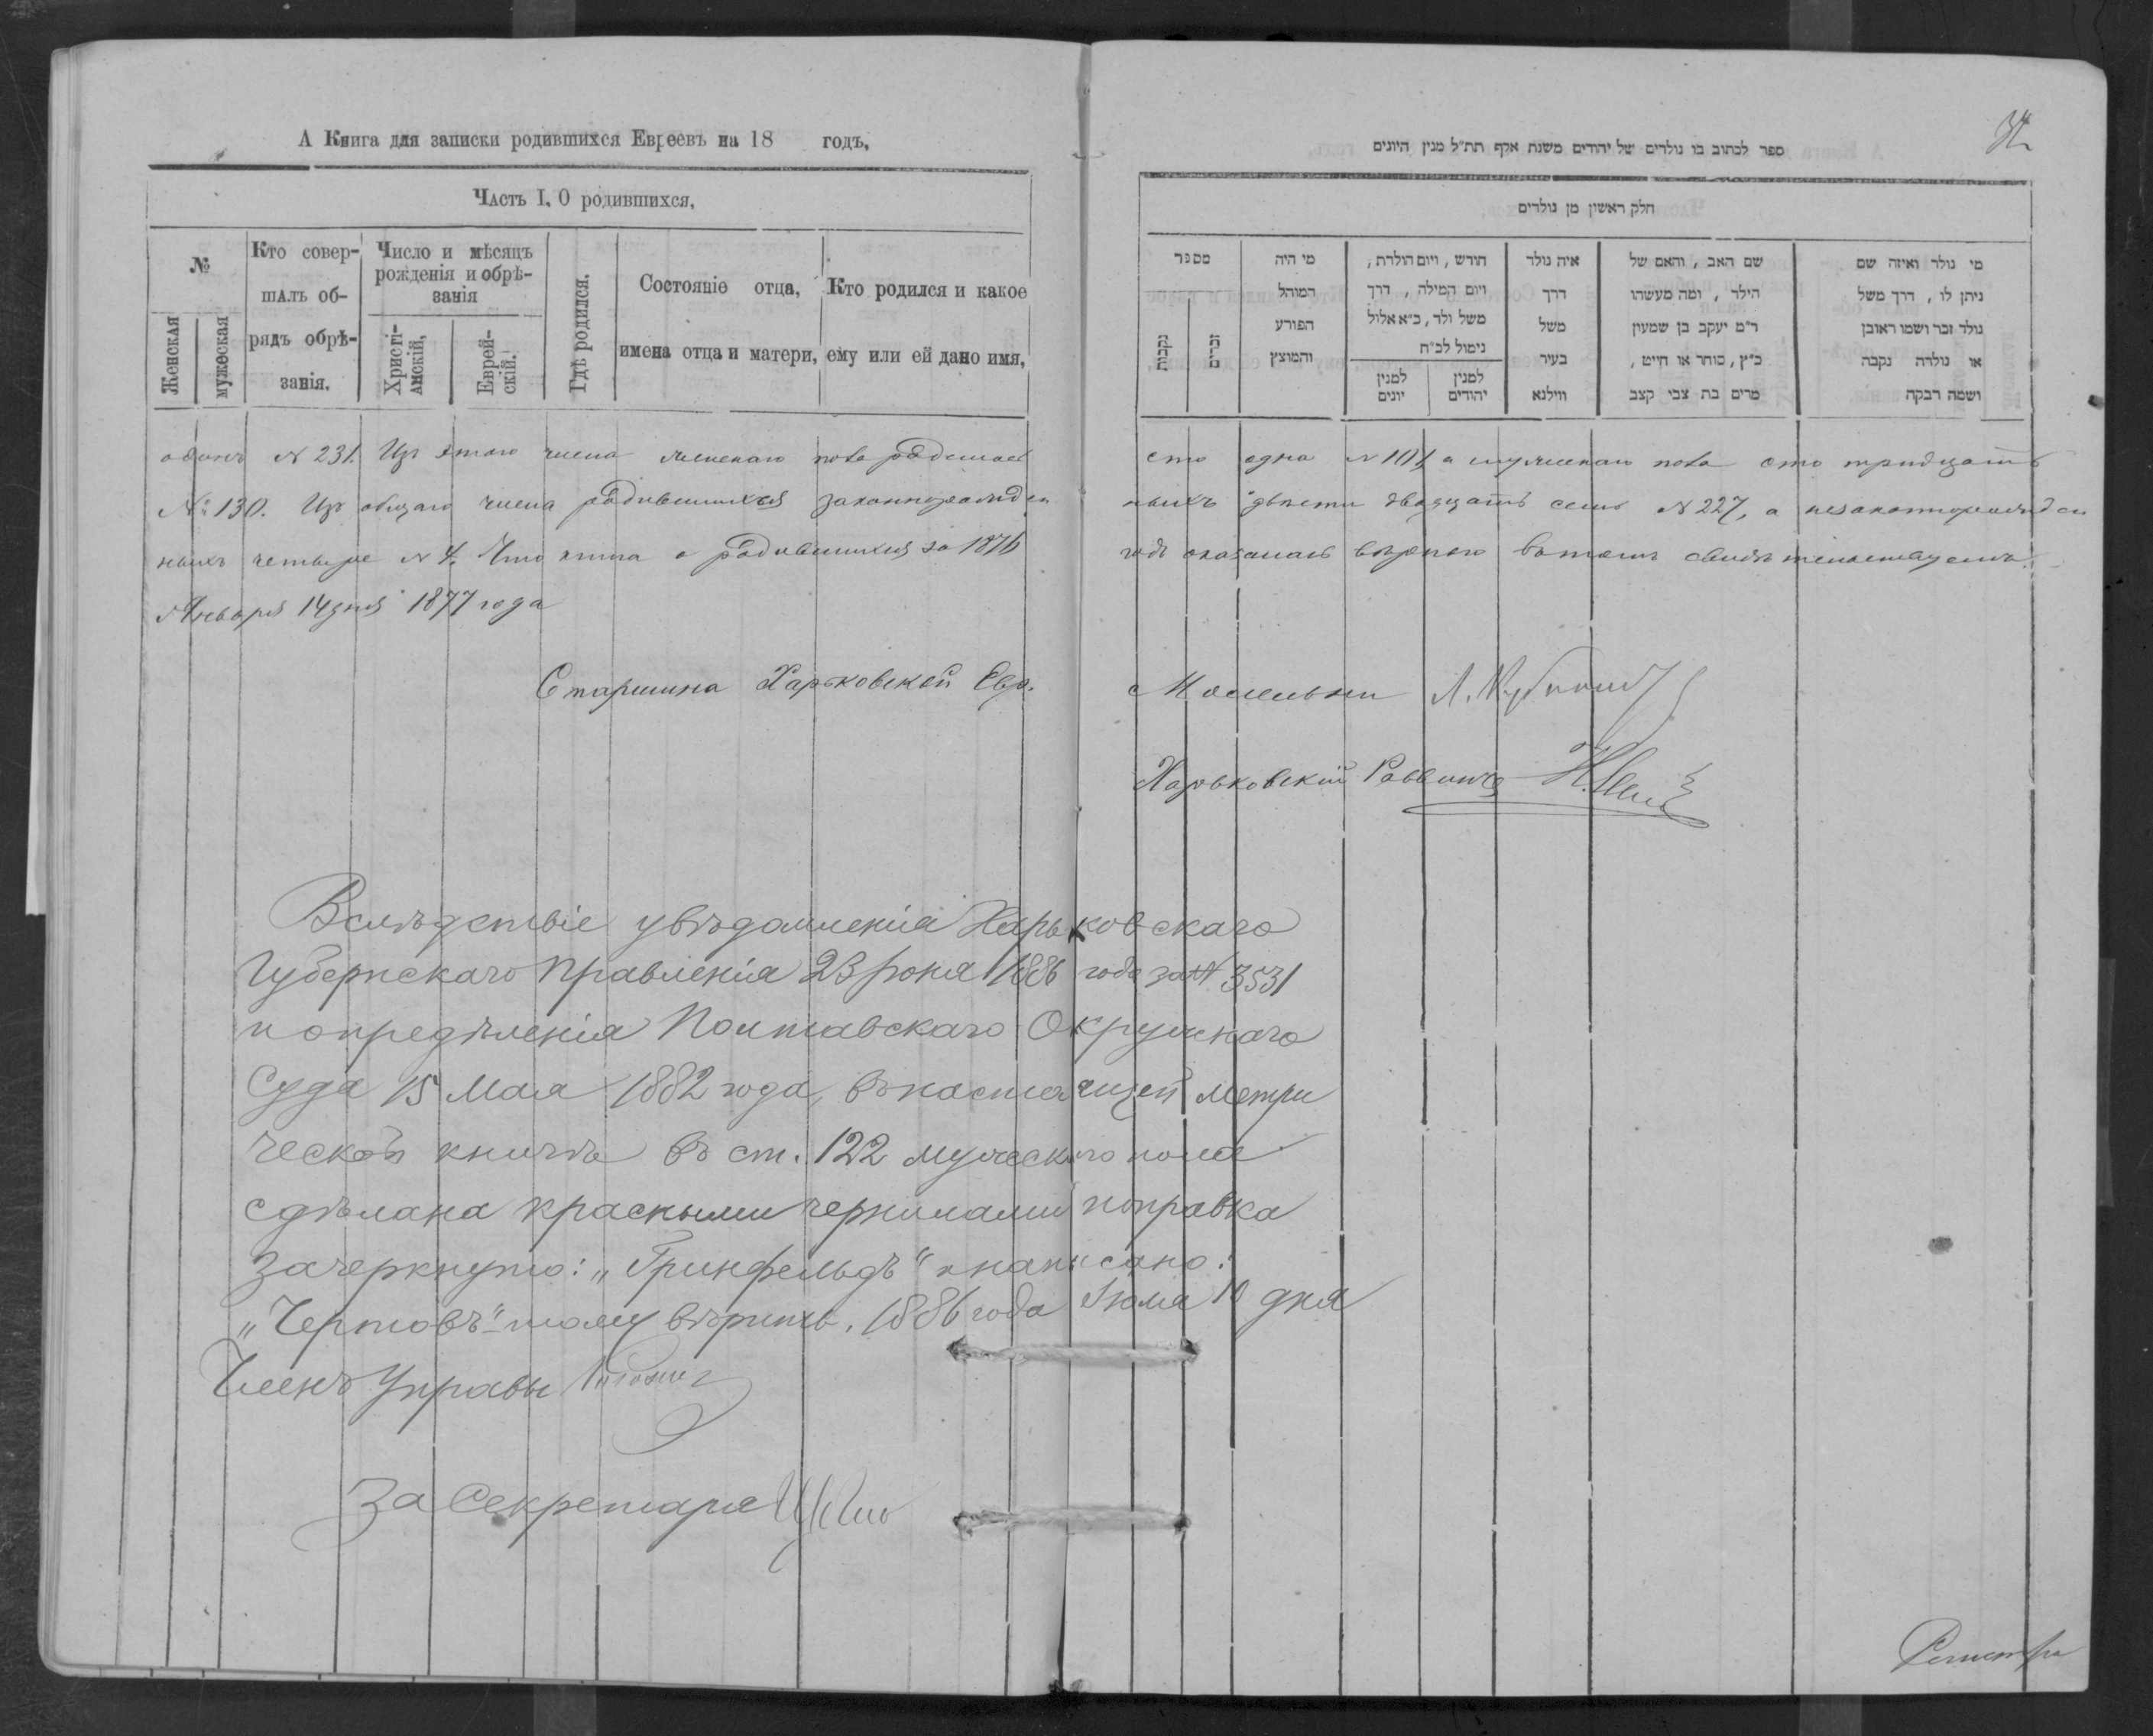 А Книга для записки родившихся Евреевъ на 18 годъ,
Часть I, О родившихся,
№
Женская
мужеская
Кто совер-
шалъ об-
рядъ обрѣ-
занія.
Число и мѣсяцъ
рожденія и обрѣ-
занія
Христі-
анскій,
Еврей-
скій.
Гдѣ родился.
Состояніе отца,
имена отца и матери,
Кто родился и какое
ему или ей дано имя,
ספר לכתוב בו נולדים של יהודים משנת אלף תת״ל מנין היונים
חלק ראשון מן נולדים
מספר
נקבות
זכרים
מי היה
המוהל
הפורע
והמוצץ
חודש, ויום הולדת,
ויום המילה, דרך
משל ולד, כ״א אלול
נימול לכ״ח
למנין
יונים
למנין
יהודים
איה נולד
דרך
משל
בעיר
ווילנא
שם האב, והאם של
הילד, ומה מעשהו
ר״מ יעקב בן שמעון
כ״ץ, סוחר או חייט,
מרים בת צבי קצב
מי נולד ואיזה שם
ניתן לו, דרך משל
נולד זכר ושמו ראובן
או נולדה נקבה
ושמה רבקה
одинъ № 231. Изъ этого числа женскаго пола родилось сто одна № 101, а мужескаго пола сто тридцать
№ 130. Изъ общаго числа родившихся законнорожден ныхъ двѣсти двадцать семь № 227, а незаконнорожден
ныхъ четыре № 4. Что книга о родившихся за 1876 годъ оказалась вѣрною въ томъ свидѣтельствуемъ.
Января 14 дня 1877 года
Старшина Харьковской Евр. Молельни Л.
Харьковскій Раввинъ
Вслѣдствіе увѣдомленія Харьковскаго
Губернскаго Правленія 23 Іюня 1886 года за № 3531
и опредѣленія Полтавскаго Окружнаго
Суда 15 Мая 1882 года, въ настоящей метри
ческой книгѣ въ ст. 122 мужескаго пола
сдѣлана красными чернилами поправка
зачеркнуто: „Гринфельдъ“ и написано:
„Чертовъ“ – тому вѣрить. 1886 года Іюля 10 дня
Членъ Управы
За Секретаря